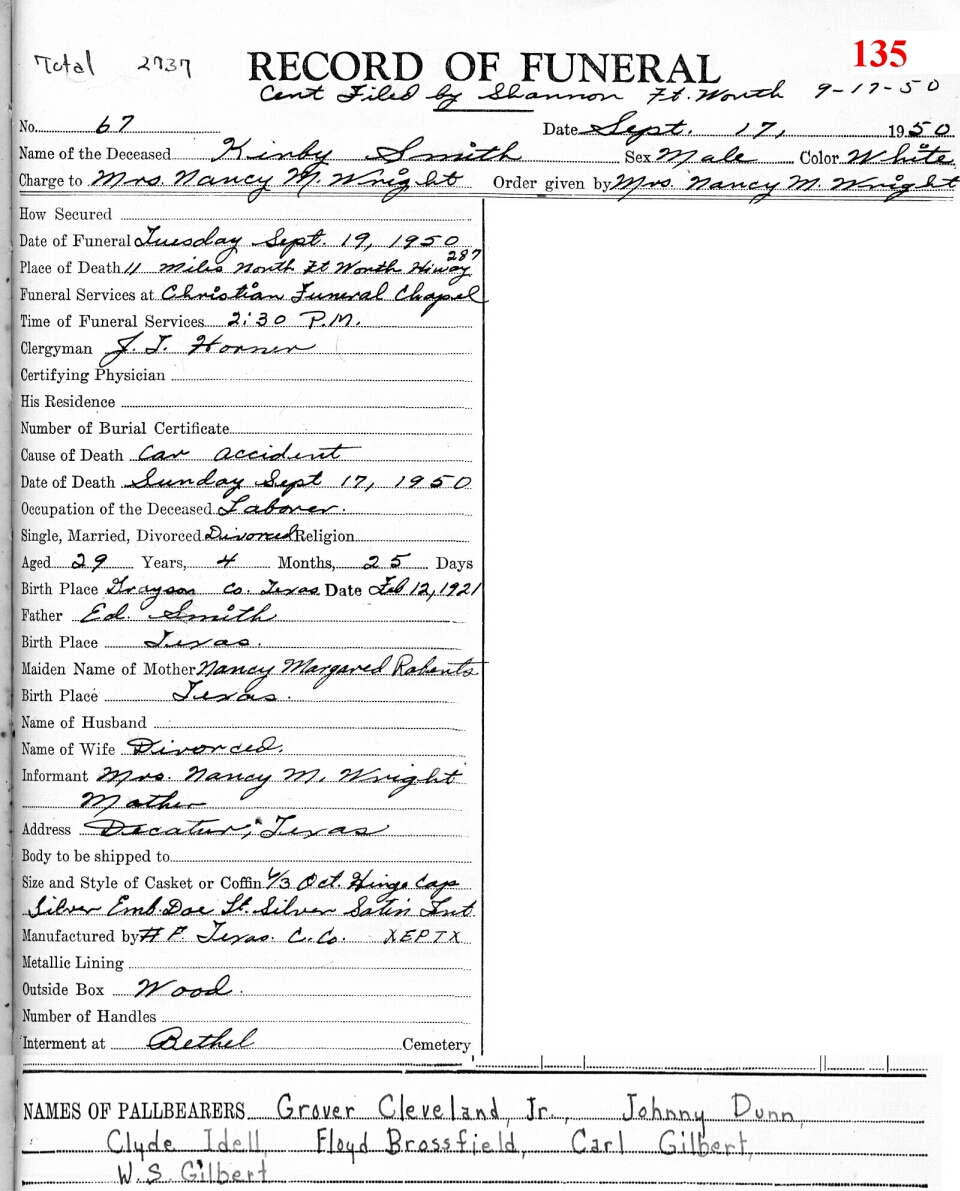 Total 2737 RECORD OF FUNERAL 135
Cert Filed by Shannon Ft. Worth 9-17-50
No. 67 Date Sept. 17, 1950
Name of the Deceased Kirby Smith Sex Male Color White
Charge to Mrs. Nancy M. Wright Order given by Mrs. Nancy M. Wright
How Secured
Date of Funeral Tuesday Sept. 19, 1950
Place of Death 11 miles North Ft Worth Hiway 287
Funeral Services at Christian Funeral Chapel
Time of Funeral Services 2:30 P.M.
Clergyman J. T. Horner
Certifying Physician
His Residence
Number of Burial Certificate
Cause of Death Car accident
Date of Death Sunday Sept 17, 1950
Occupation of the Deceased Laborer.
Single, Married, Divorced Divorced Religion
Aged 29 Years, 4 Months, 25 Days
Birth Place Grayson Co. Texas Date Feb 12, 1921
Father Ed. Smith
Birth Place Texas.
Maiden Name of Mother Nancy Margared Roberts
Birth Place Texas.
Name of Husband
Name of Wife Divorced.
Informant Mrs. Nancy M. Wright
Mother
Address Decatur, Texas
Body to be shipped to
Size and Style of Casket or Coffin 6/3 Oct. Hinge Cap
Silver Emb. Doe St. Silver Satin Int.
Manufactured by Texas C. Co. XEPTX
Metallic Lining
Outside Box Wood.
Number of Handles
Interment at Bethel Cemetery
NAMES OF PALLBEARERS Grover Cleveland, Jr., Johnny Dunn,
Clyde Idell, Floyd Brossfield, Carl Gilbert,
W.S. Gilbert